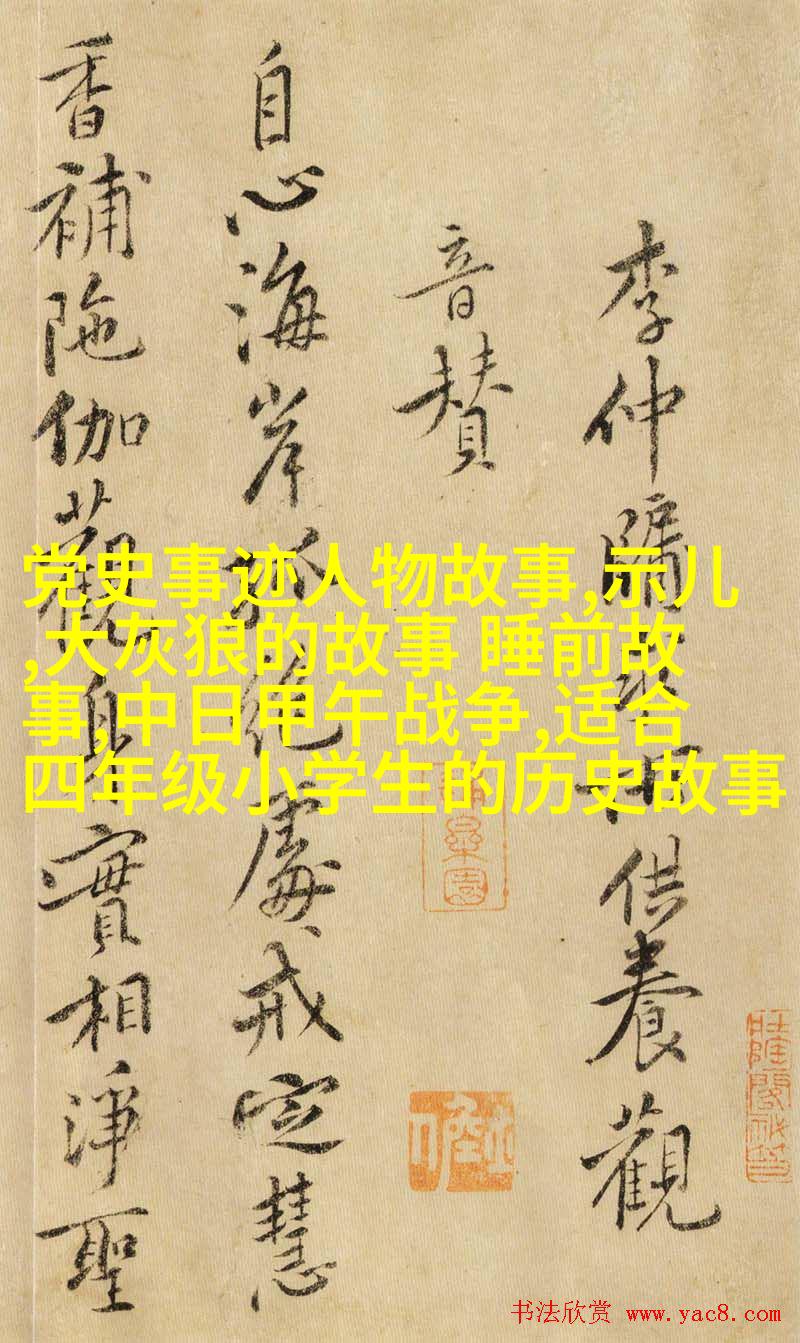 李仲供養觀
音賛
自心海岸孤絕處戒定慧
香補陁伽觀身實相淨聖
党史事迹人物故事,示儿
,大灰狼的故事 睡前故
事,中日甲午战争,适合
四年级小学生的历史故事
书法欣赏 www.yac8.com